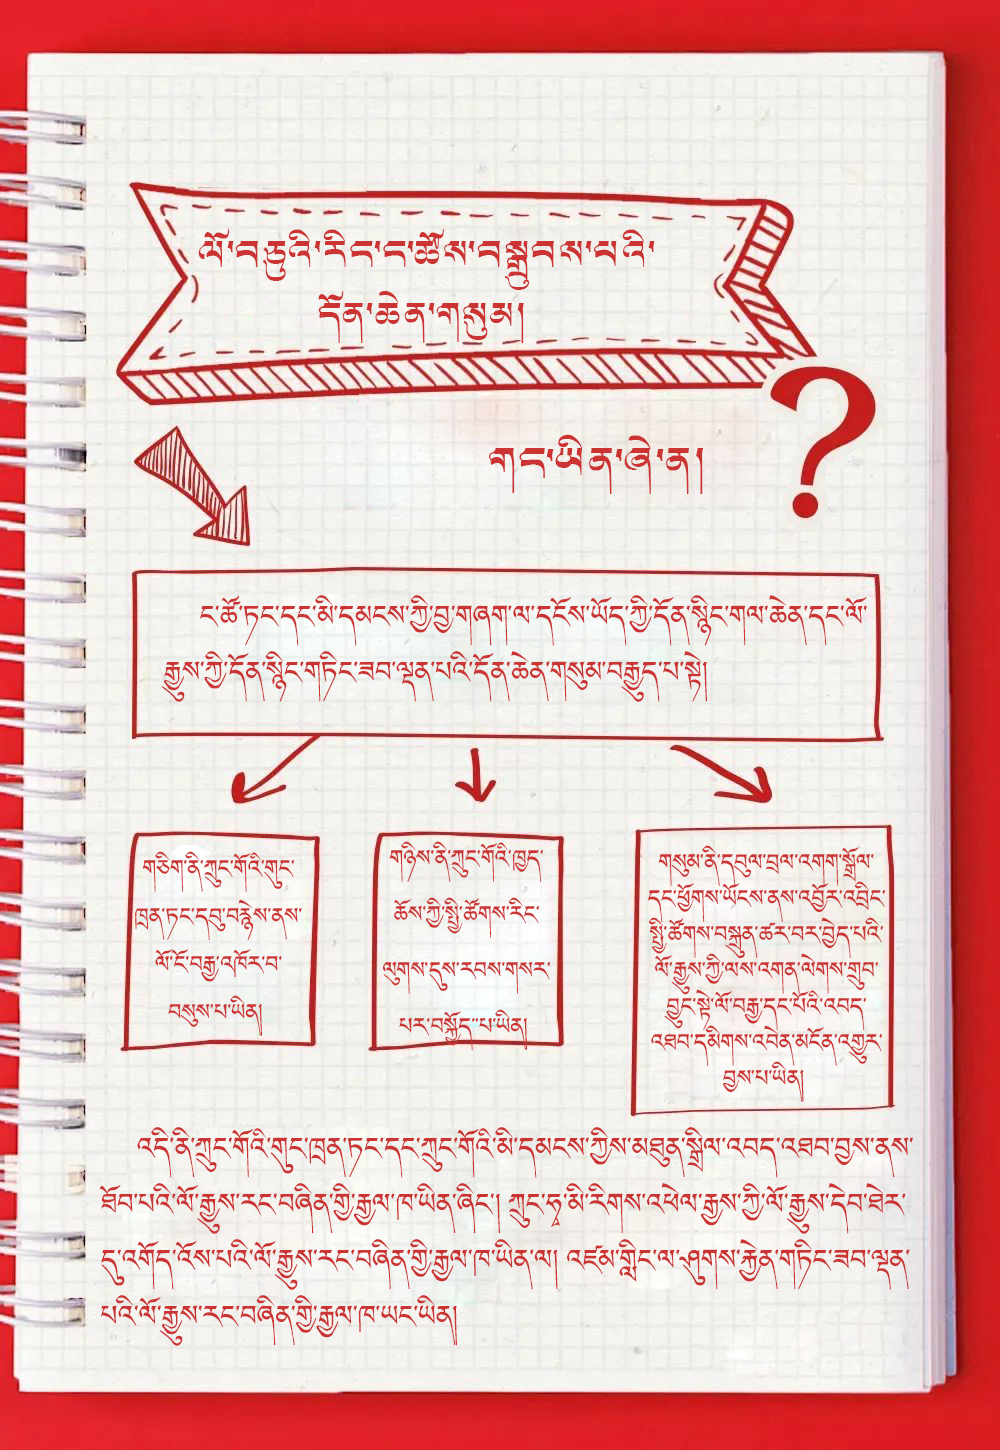 ལོ་བཅུའི་རིང་ང་ཚོས་བསྒྲུབས་པའི་
དོན་ཆེན་གསུམ།
གང་ཡིན་ཞེ་ན།
?
ང་ཚོ་ཏང་དང་མི་དམངས་ཀྱི་བྱ་གཞག་ལ་དངོས་ཡོད་ཀྱི་དོན་སྙིང་གལ་ཆེན་དང་ལོ་
རྒྱུས་ཀྱི་དོན་སྙིང་གཏིང་ཟབ་ལྡན་པའི་དོན་ཆེན་གསུམ་བརྒྱུད་པ་སྟེ།
གཅིག་ནི་ཀྲུང་གོའི་གུང་
ཁྲན་ཏང་དབུ་བརྙེས་ནས་
ལོ་ངོ་བརྒྱ་འཁོར་བ་
བསུས་པ་ཡིན།
གཉིས་ནི་ཀྲུང་གོའི་ཁྱད་
ཆོས་ཀྱི་སྤྱི་ཚོགས་རིང་
ལུགས་དུས་རབས་གསར་
པར་བསྐྱོད་པ་ཡིན།
གསུམ་ནི་དབུལ་བྲལ་འགག་སྒྲོལ་
དང་ཕྱོགས་ཡོངས་ནས་འབྱོར་འབྲིང་
སྤྱི་ཚོགས་བསྐྲུན་ཚར་བར་བྱེད་པའི་
ལོ་རྒྱུས་ཀྱི་ལས་འགན་ལེགས་གྲུབ་
བྱུང་སྟེ་ལོ་བརྒྱ་དང་པོའི་འབད་
འཐབ་དམིགས་འབེན་མངོན་འགྱུར་
བྱས་པ་ཡིན།
འདི་ནི་ཀྲུང་གོའི་གུང་ཁྲན་ཏང་དང་ཀྲུང་གོའི་མི་དམངས་ཀྱིས་མཐུན་སྒྲིལ་འབད་འཐབ་བྱས་ནས་
ཐོབ་པའི་ལོ་རྒྱུས་རང་བཞིན་གྱི་རྒྱལ་ཁ་ཡིན་ཞིང་། ཀྲུང་ཧྭ་མི་རིགས་འཕེལ་རྒྱས་ཀྱི་ལོ་རྒྱུས་དེབ་ཐེར་
དུ་འགོད་འོས་པའི་ལོ་རྒྱུས་རང་བཞིན་གྱི་རྒྱལ་ཁ་ཡིན་ལ། འཛམ་གླིང་ལ་ཤུགས་རྐྱེན་གཏིང་ཟབ་ལྡན་
པའི་ལོ་རྒྱུས་རང་བཞིན་གྱི་རྒྱལ་ཁ་ཡང་ཡིན།